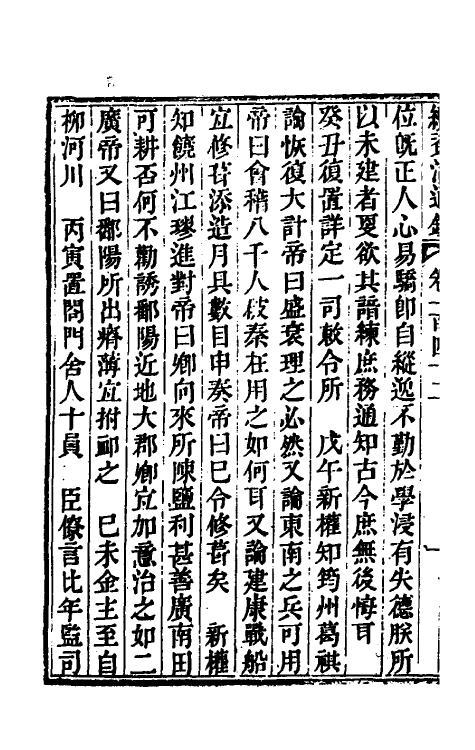 續資治通鑑 卷一百四十二
位既正人心易驕卽自縱逸不勤於學浸有失德朕所
以未建者更欲其諳練庶務通知古今庶無後悔耳
癸丑復置詳定一司敕令所 戊午新權知筠州葛祺
論恢復大計帝曰盛衰理之必然又論東南之兵可用
帝曰會稽八千人破秦在用之如何耳又論建康戰船
宜修葺添造月具數目申奏帝曰已令修葺矣 新權
知饒州江璆進對帝曰卿向來所陳鹽利甚善廣南田
可耕否何不勸誘鄱陽近地大郡卿宜加意治之如二
廣帝又曰鄱陽所出瘠薄宜拊卹之 己未金主至自
柳河川 丙寅置閤門舍人十員 臣僚言比年監司